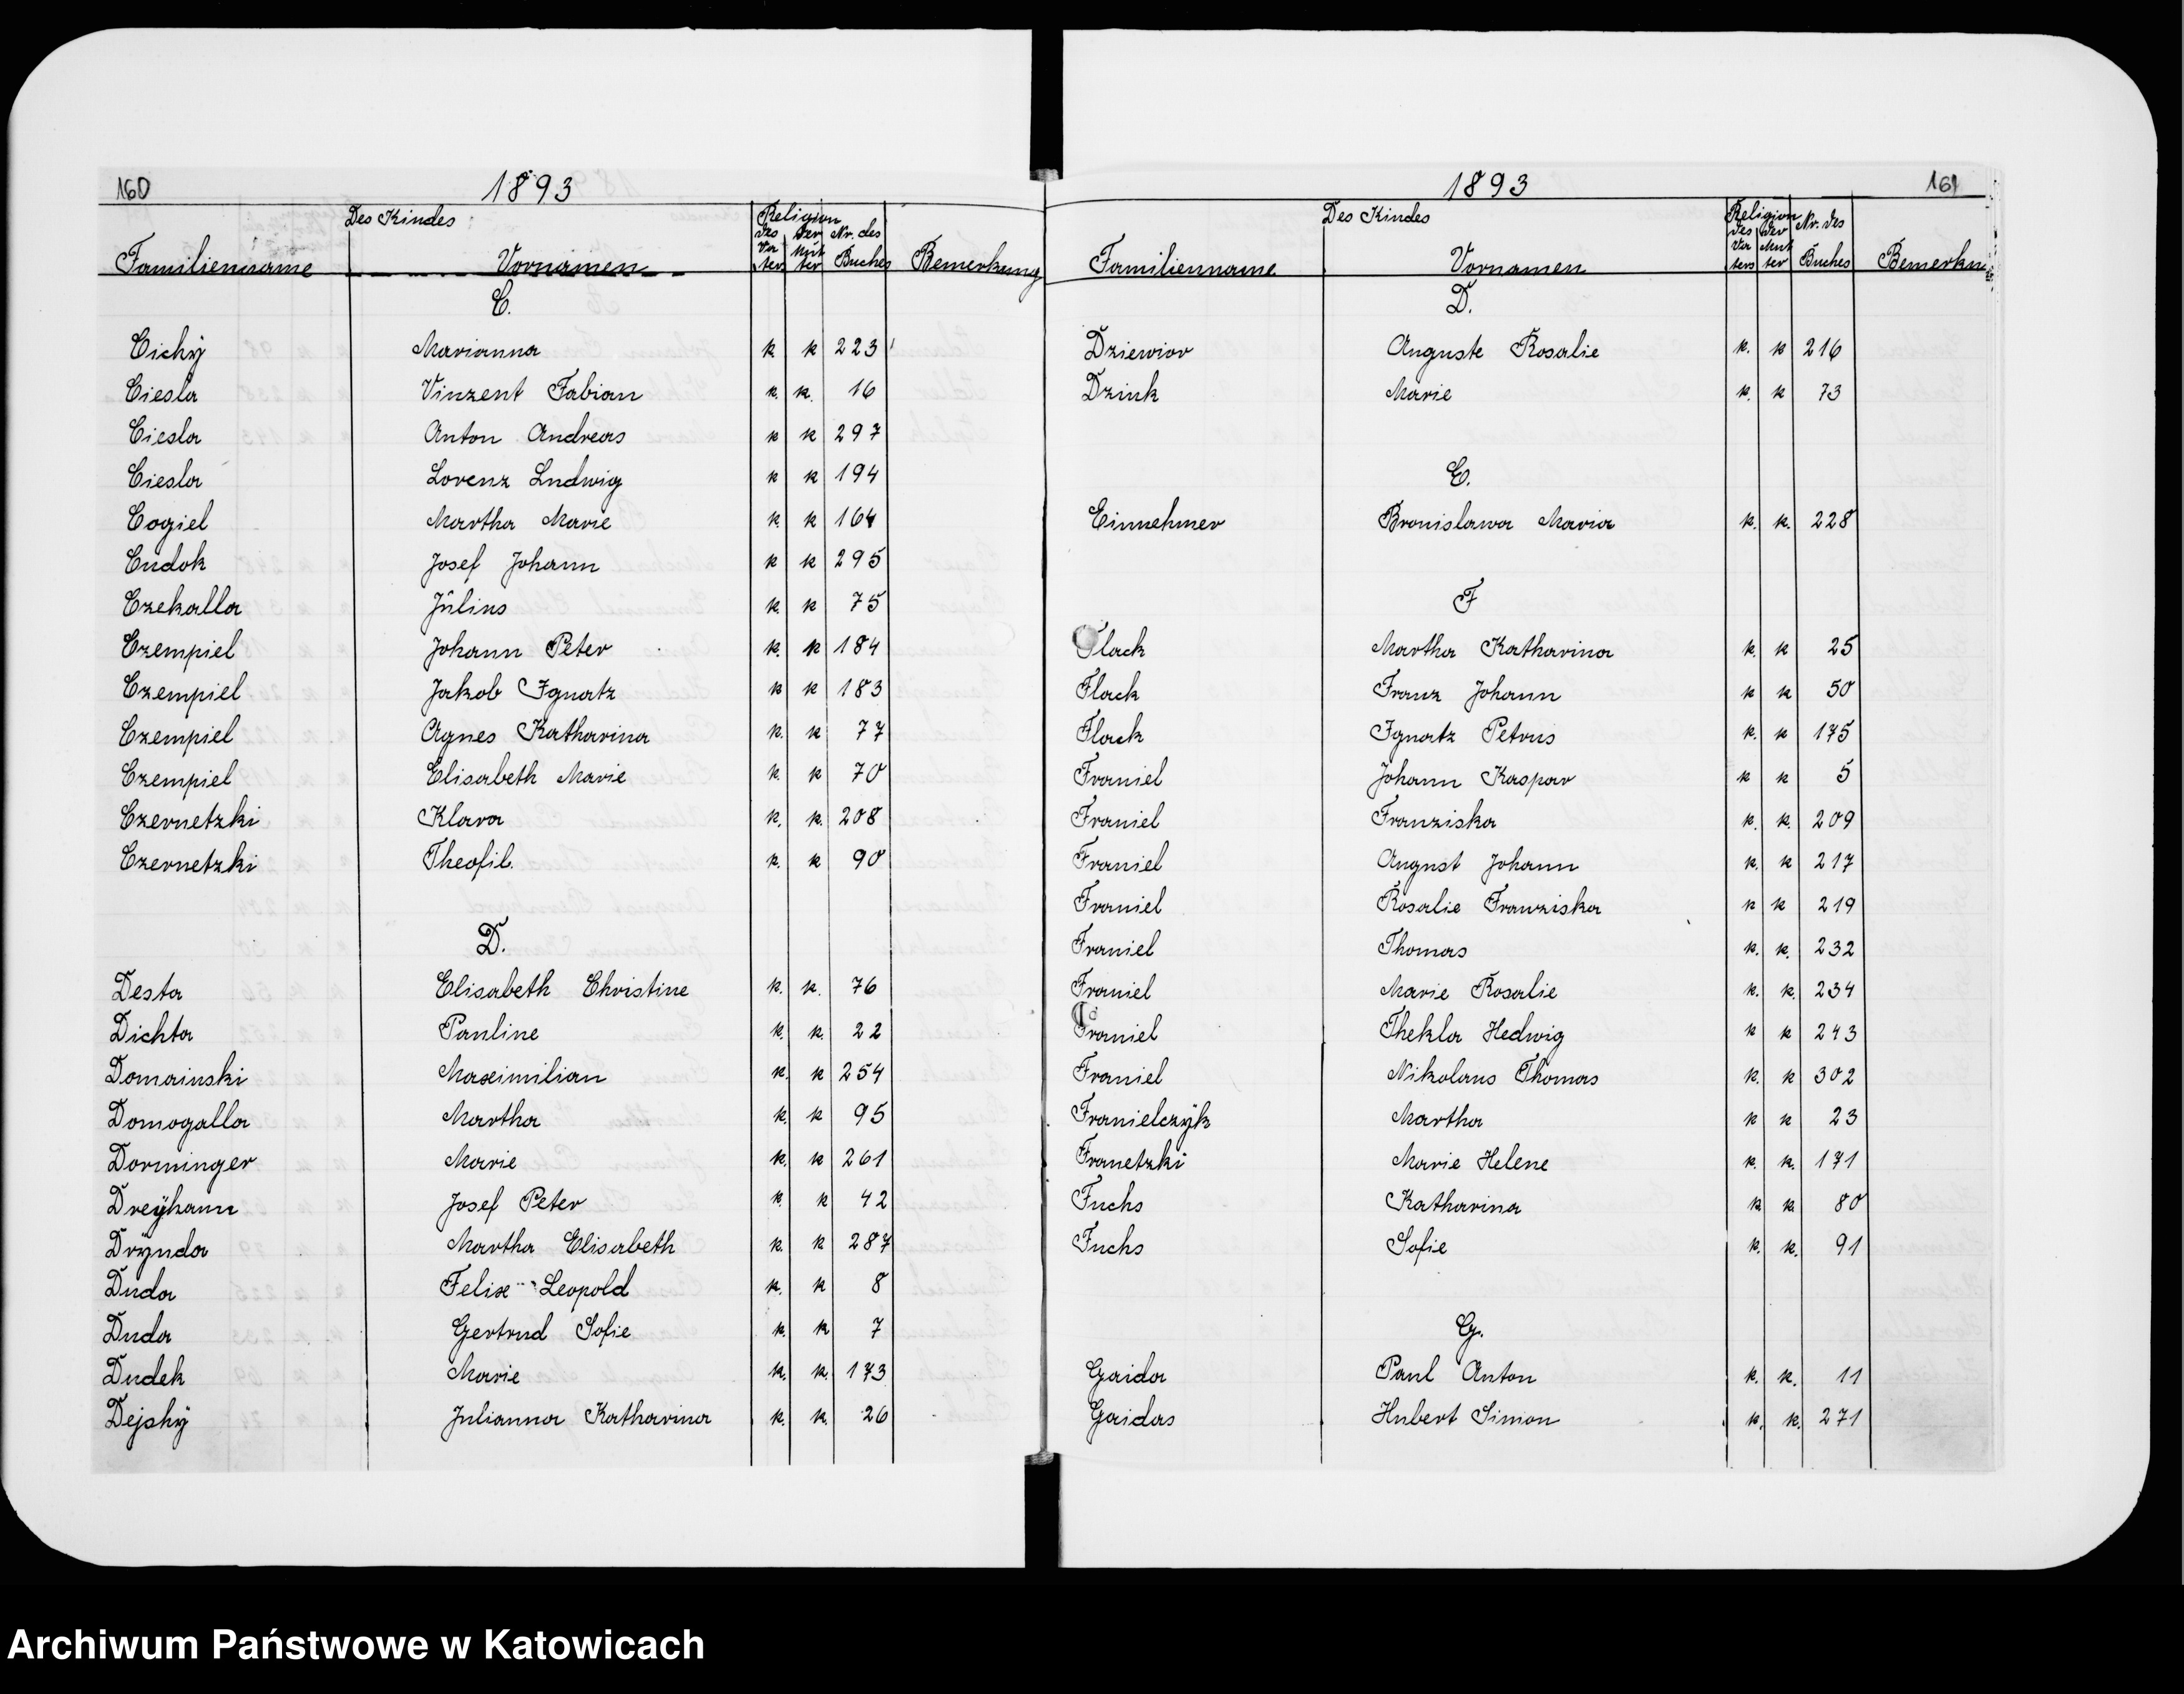 160
1893
Des Kindes
Religion
des Vaters
der Mutter
Nr. des Buches
Familienname Vornamen Bemerkung
C.
Cichÿ Marianna k k 223
Ciesla Vinzent Fabian k. k. 16
Ciesla Anton Andreas k k 297
Ciesla Lorenz Ludwig k k 194
Cogiel Martha Marie k k 164
Cudok Josef Johann k k 295
Czekalla Julius k. k 75
Czempiel Johann Peter k. k 184
Czempiel Jakob Ignatz k k 183
Czempiel Agnes Katharina k. k 77
Czempiel Elisabeth Marie k. k 70
Czernetzki Klara k. k. 208
Czernetzki Theofil. k. k 90
D.
Desta Elisabeth Christine k. k. 76
Dichta Pauline k. k. 22
Domainski Maximilian k. k 254
Domogalla Martha k. k 95
Dorminger Marie k. k 261
Dreÿhann Josef Peter k. k 42
Drÿnda Martha Elisabeth k. k 287
Duda Felix Leopold k. k 8
Duda Gertrud Sofie k. k 7
Dudek Marie k. k. 173
Dejskÿ Julianna Katharina k. k. 26
1893
161
Des Kindes
Religion
des Vaters
der Mutter
Nr. des Buches
Familienname Vornamen Bemerkun
D.
Dziewior Auguste Rosalie k. k 216
Dzink Marie k. k 73
E.
Einnehmer Bronislawa Maria k. k. 228
F
Flack Martha Katharina k. k 25
Flack Franz Johann k k 50
Flack Ignatz Petrus k. k 175
Franiel Johann Kaspar k k 5
Franiel Franziska k. k. 209
Franiel August Johann k. k 217
Franiel Rosalie Franziska k k 219
Franiel Thomas k. k. 232
Franiel Marie Rosalie k. k. 234
Franiel Thekla Hedwig k k 243
Franiel Nikolaus Thomas k. k 302
Franielczÿk Martha k k 23
Franetzki Marie Helene k. k. 171
Fuchs Katharina k k 80
Fuchs Sofie k. k. 91
G.
Gaida Paul Anton k. k. 11
Gaidas Hubert Simon k. k. 271
Archiwum Państwowe w Katowicach